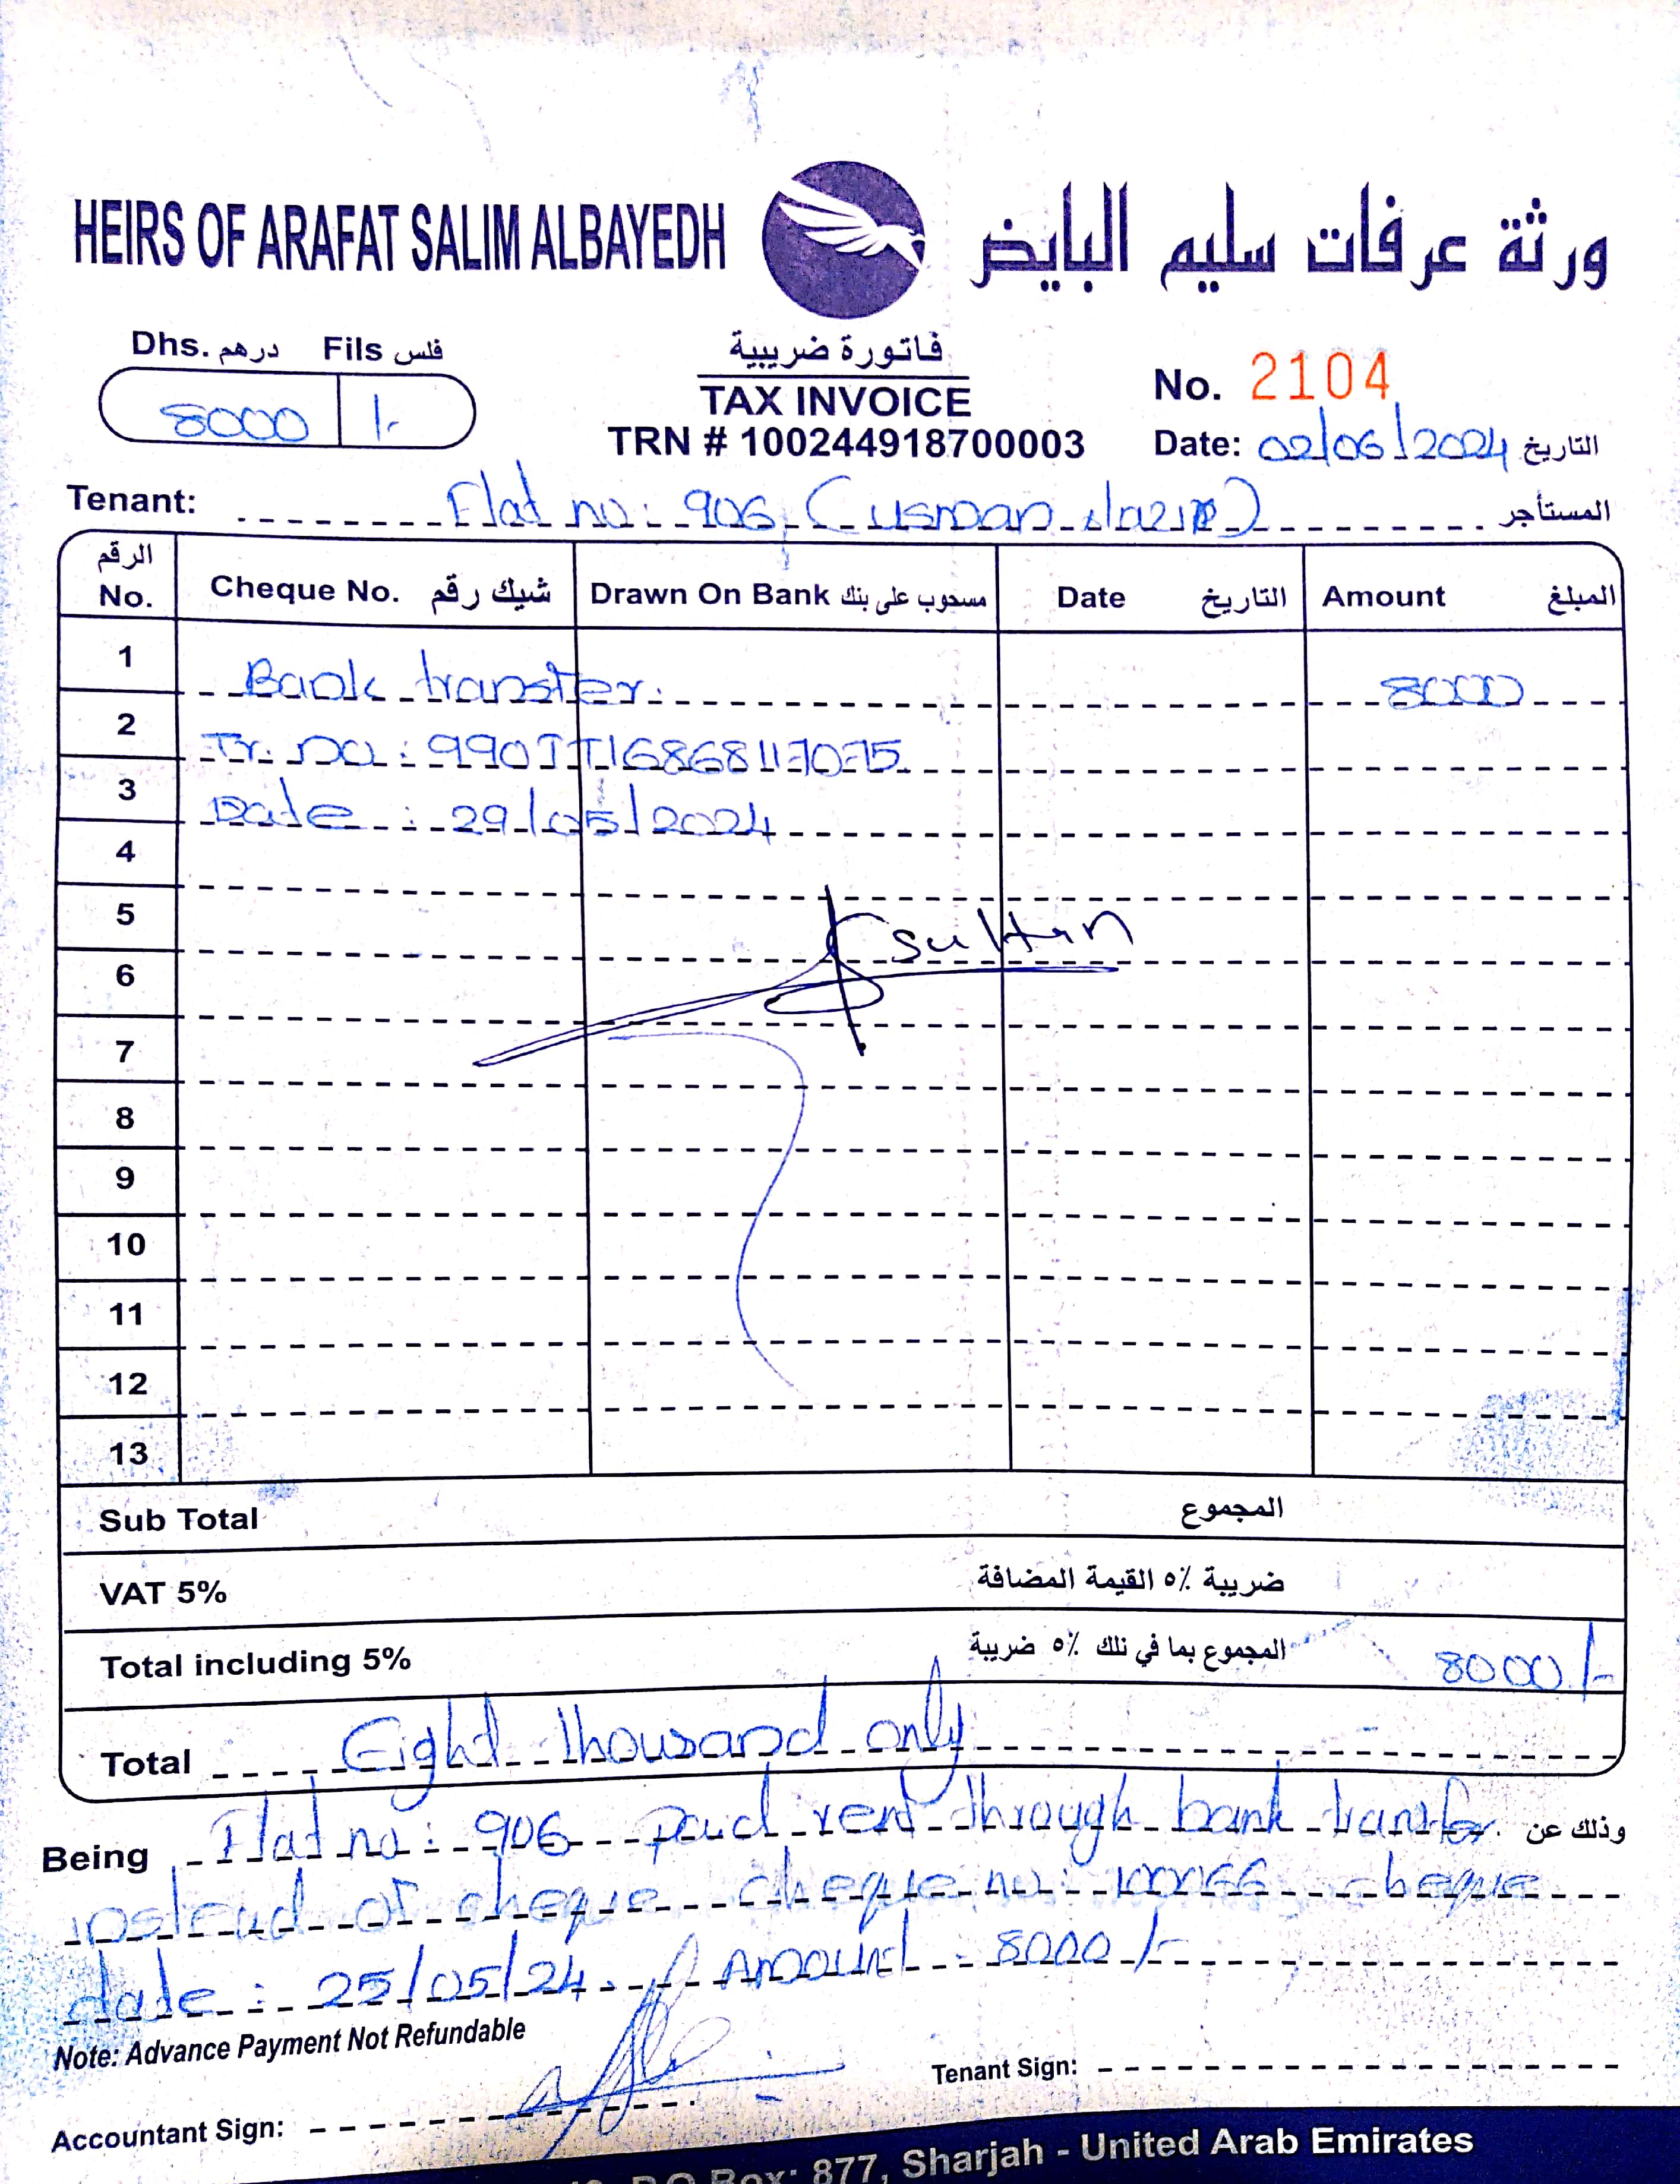 HEIRS OF ARAFAT SALIM ALBAYEDH ورثة عرفات سليم البايض
Dhs. درهم Fils فلس
8000 /-
فاتورة ضريبية
TAX INVOICE
TRN # 100244918700003
No. 2104
Date: 02/06/2024 التاريخ
Tenant: Flat no: 906 (usman Nazir) المستأجر
الرقم No. Cheque No. شيك رقم Drawn On Bank مسحوب على بنك Date التاريخ Amount المبلغ
1 Bank transfer. 8000
2 Tr. no: 990TT
3 Date: 29/05/2024
4
5 sultan
6
7
8
9
10
11
12
13
Sub Total المجموع
VAT 5% ضريبة ٥٪ القيمة المضافة
Total including 5% المجموع بما في تلك ٥٪ ضريبة 8000/-
Total Eight thousand only
Being Flat no: 906 paid rent through bank transfer. وذلك عن
instead of cheque cheque no: 100066 cheque
date: 25/05/24. Amount: 8000/-
Note: Advance Payment Not Refundable
Tenant Sign:
Accountant Sign:
P.O Box: 877, Sharjah - United Arab Emirates